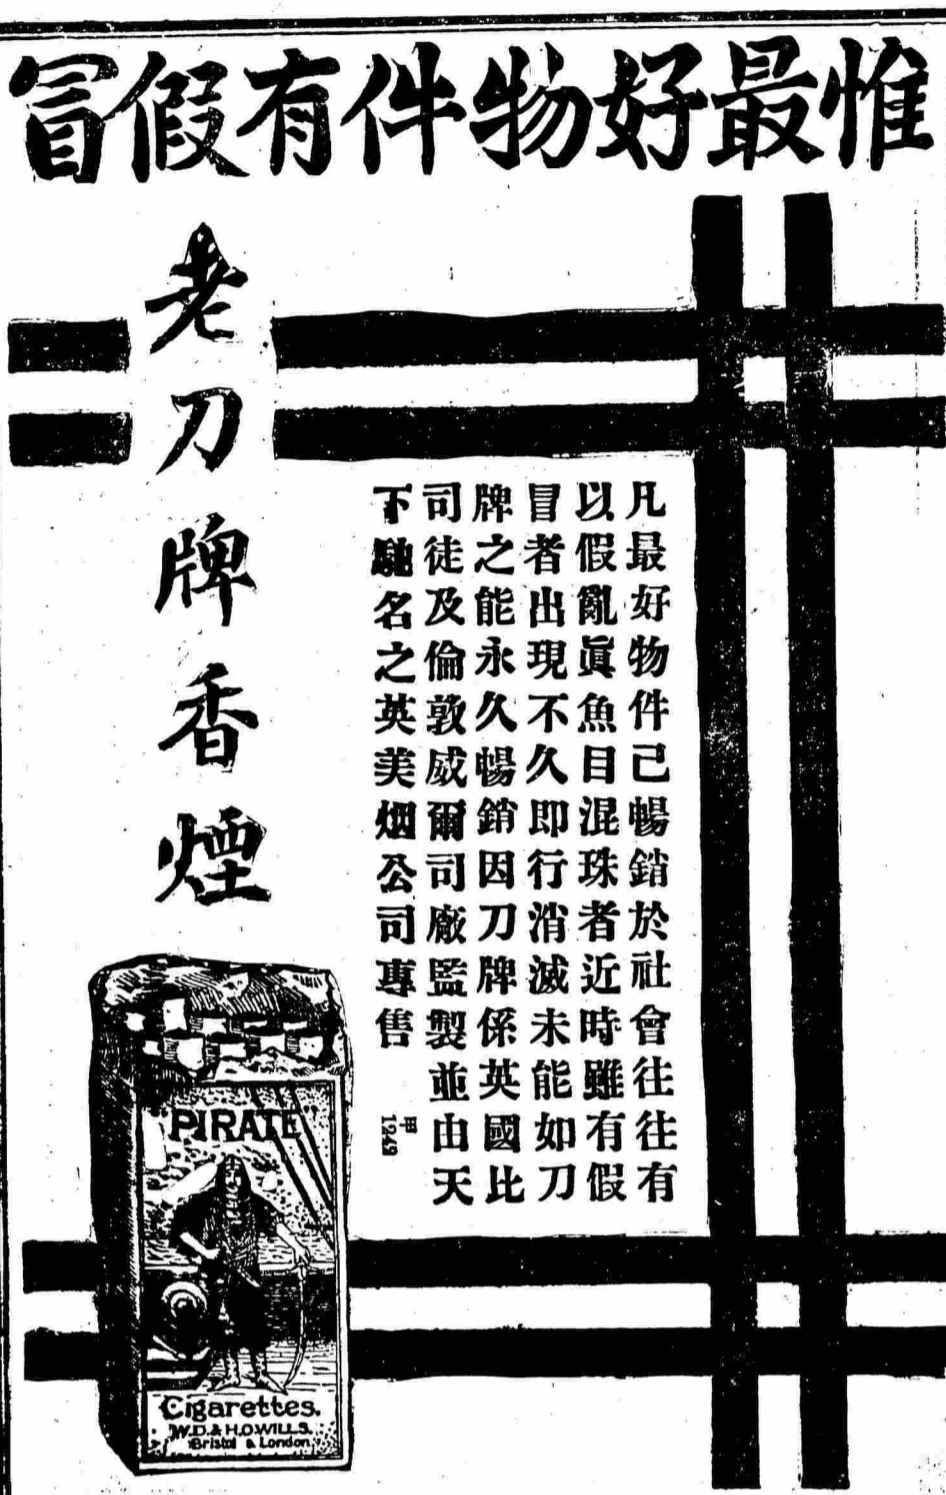 惟最好物件有假冒
凡最好物件已暢銷於社會往往有
以假亂眞魚目混珠者近時雖有假
冒者出現不久即行消滅未能如刀
牌之能永久暢銷因刀牌係英國比
司徒及倫敦威爾司廠監製並由天
下馳名之英美烟公司專售
甲
1249
老刀牌香煙
"PIRATE"
Cigarettes.
W.D.& H.O.WILLS.
Bristol & London.